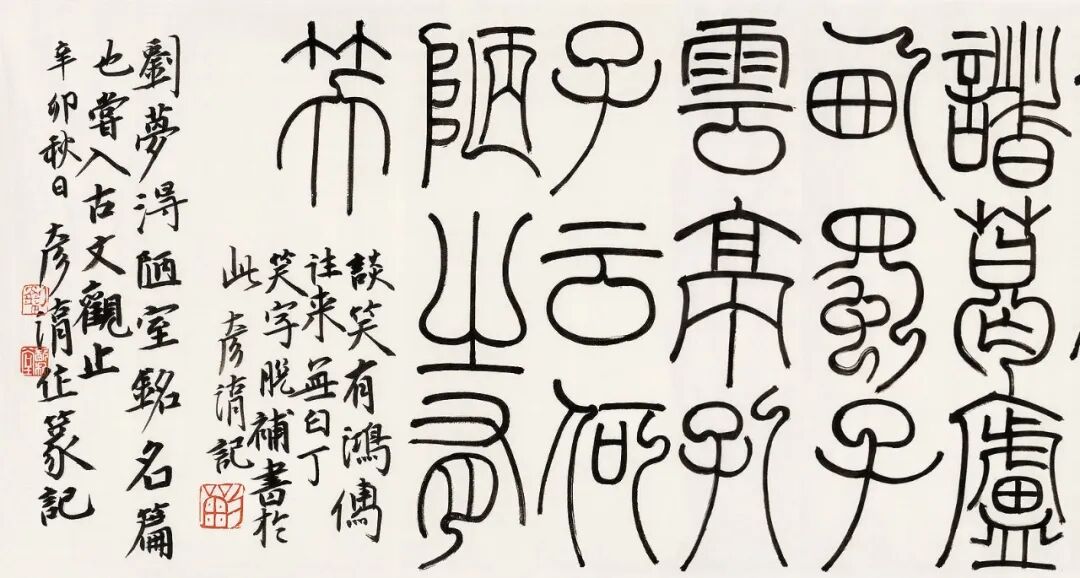 諸葛廬
西蜀子
雲亭孔
子云何
陋之有
笑
談笑有鴻儒
往来無白丁
笑字脫補書於
此 彦湑記
劉夢得陋室銘名篇
也嘗入古文觀止
辛卯秋日彦湑作篆記